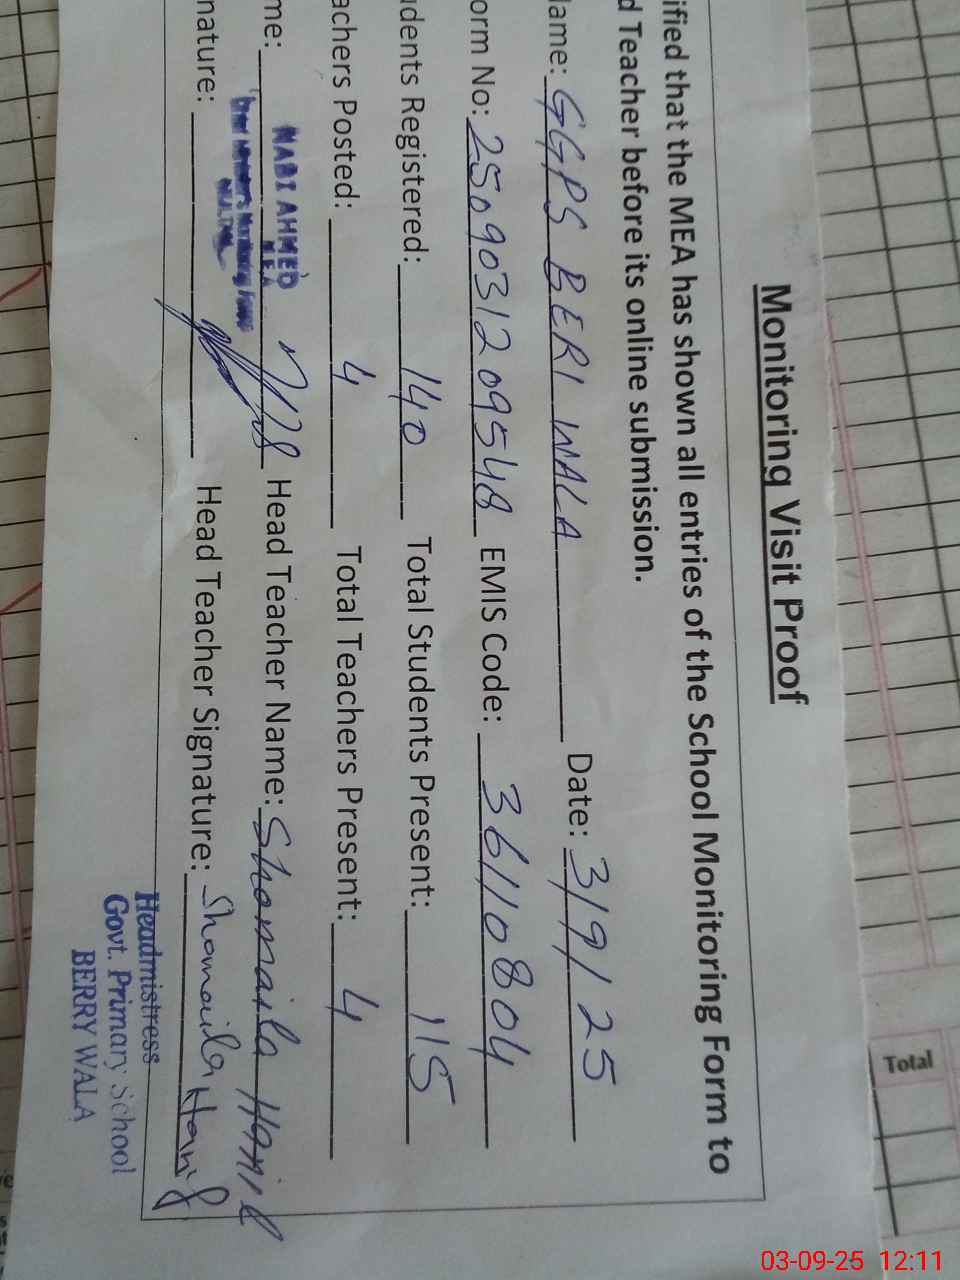 Monitoring Visit Proof
ified that the MEA has shown all entries of the School Monitoring Form to
d Teacher before its online submission.
lame: GGPS BERI WALA Date: 3/9/25
orm No: 2509031209548 EMIS Code: 36110804
udents Registered: 140 Total Students Present: 115
achers Posted: 4 Total Teachers Present: 4
me: NABI AHMED Head Teacher Name: Shomaila Hanif
M.E.A
nature: Head Teacher Signature: Shomaila Hanif
Headmistress
Govt. Primary School
BERRY WALA
Total
03-09-25 12:11